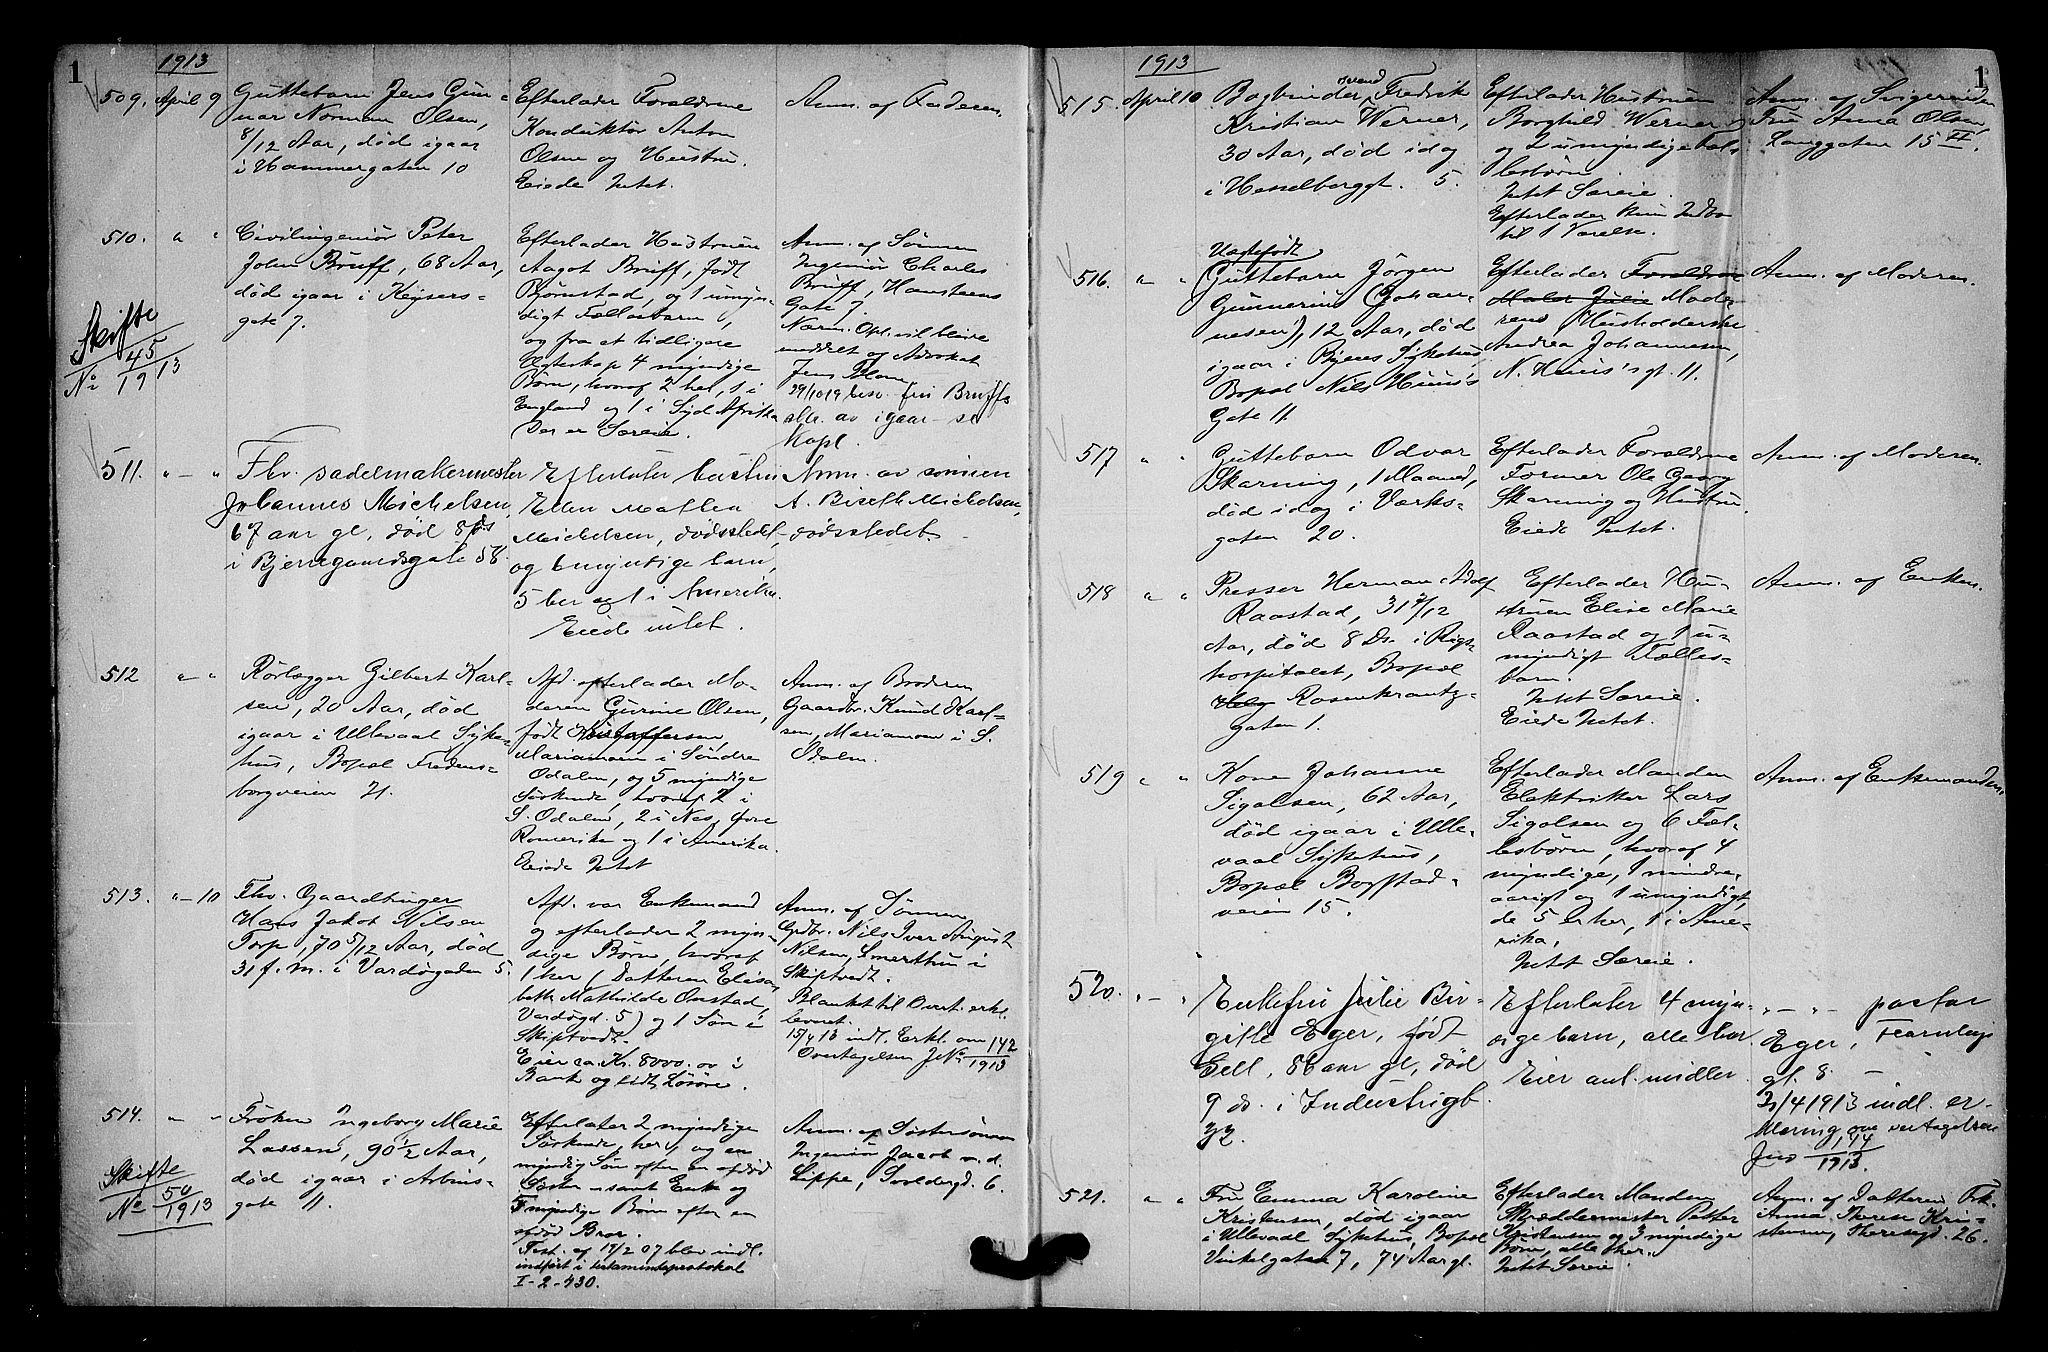 1
1913
509. April 9 Guttebarn Jens Gun-
nar Norman Olsen,
8/12 Aar, død igaar
i Hammergaten 10
Efterlader Forældrene
Konduktør Anton
Olsen og Hustru.
Eiede Intet.
Anm. af Faderen.
510. " " Civilingeniør Peter
John Bruff, 68 Aar,
død igaar i Keysers-
gate 7.
Skifte
No 45
1913
Efterlader Hustruen
Aagot Bruff, født
Bjørnstad, og 1 umyn-
digt Fællesbarn,
og fra et tidligere
Egteskap 4 myndige
Børn, hvoraf 2 her, 1 i
England og 1 i Syd Afrika
Der er Særeie.
Anm. af Sønnen
Ingeniør Charles
Bruff, Hansteens
Gate 7.
Nærm. Opl. vil blive
meddelt og Advokat
Jens
29/10 19 besv. fru Bruffs
av igaar - se
Kopi.
511. " - " Fhv. sadelmakermester
Johannes Michelsen,
67 aar gl, død 8 ds
i Bjerregaardsgate 58
Efterlater hustru
Ellen Mathea
Michelsen, dødsstedet,
og 6 myndige barn,
5 her og 1 i Amerika.
Eiede intet.
Anm. av sønnen
A. Biseth Michelsen,
dødsstedet.
512 " - " Rørlægger Gilbert Karl-
sen, 20 Aar, død
igaar i Ullevaal Syke-
hus, Bopæl Fredens-
borgveien 21.
Afd. efterlader Mo-
deren Gurine Olsen,
født Kristoffersen,
Mariamoen i Søndre
Odalen, og 5 myndige
Søskende, hvoraf 2 i
S. Odalen, 2 i Nes, Øvre
Romerike og 1 i Amerika.
Eiede Intet
Anm. af Broderen
Gaardbr. Knud Karl-
sen, Mariamoen i S.
Odalen.
513. " - 10 Fhv. Gaardbruger
Hans Jakob Nilsen
Torp, 70 5/12 Aar, død
31 f. m. i Vardøgaden 5.
Afd. var Enkemand
og efterlader 2 myn-
dige Børn, hvoraf
1 her (Datteren Elisa-
beth Mathilde Onstad,
Vardøgd. 5) og 1 Søn i
Skiptvedt.
Eier ca. Kr. 8000.00 i
Bank og lidt Løsøre.
Anm. af Sønnen
Grdbr. Nils Iver August
Nilsen, Smerthu i
Skiptvedt.
Blanket til Overt. erkl.
leveret.
15/4 13 indl. Erkl. om
Overtagelsen J No 142
1913
514. " " Frøken Ingeborg Marie
Lassen, 90 1/2 Aar,
død igaar i Arbins-
gate 11.
Skifte
No 50
1913
Efterlater 2 myndige
Søskende, her, og en
myndig Søn efter en afdød
Søster - samt Enke og
7 myndige Børn efter en
afdød Bror.
Test. af 17/2 07 blev indl.
indført i testamentsprotokol
I - 2 - 430.
Anm. af Søstersønnen
Ingeniør Jacob v. d.
Lippe, Svoldergd. 6.
1
1913
515. April 10 Bogbindersvend Fredrik
Kristian Werner,
30 Aar, død idag
i Hesselberggt. 5.
Efterlader Hustruen
Borghild Werner
og 2 umyndige Fæl-
lesbørn
Intet Særeie.
Efterlader kun Indbo
til 1 Værelse.
Anm. af Svigerinden
Fru Anna Olsen,
Langgaten 15 II.
516. " " Uægtefødt
(Guttebarn Jørgen
Gunnerius (Johan-
nesen), 12 Aar, død
igaar i Byens Sykehus,
Bopæl Nils Huus's
Gate 11
Efterlader Forældrene
Maler Julie Mode-
ren, Husholderske
Andrea Johannesen,
N. Huus's gt. 11.
Anm. af Moderen.
517 " " Guttebarn Odvar
Skarning, 1 Maaned,
død idag i Værks-
gaten 20.
Efterlader Forældrene
Former Ole Georg
Skarning og Hustru.
Eiede Intet.
Anm. af Moderen.
518 " " Presser Herman Adolf
Raastad, 31 /12
Aar, død 8 Ds. i Rigs-
hospitalet, Bopæl
Rosenkrantz-
gaten 1.
Efterlader Hu-
struen Elise Marie
Raastad og 1 u-
myndigt Fælles-
barn.
Intet Særeie.
Eiede Intet.
Anm. af Enken.
519 " " Kone Johanne
Sigalsen, 62 Aar,
død igaar i Ulle-
vaal Sykehus,
Bopæl Bogstad-
veien 15.
Efterlader Manden
Elektriker Lars
Sigalsen og 6 Fæl-
lesbørn, hvoraf 4
myndige, 1 mindre-
aarigt og 1 umyndigt,
de 5 er her, 1 i Ame-
rika,
Intet Særeie.
Anm. af Enkemanden.
520. " - " Enkefru Julie Bir-
gitte Eger, født
Gell, 86 aar gl, død
9 ds. i Industrigt.
Efterlater 4 myn-
dige barn, alle her
Eier ant. midler.
" - " - pastor
Eger, Fearnleys
gt. 8. -
/4 1913 indl. er-
klæring om overtagelsen
Jno 14
1913.
521. " " Fru Emma Karoline
Kristensen, død igaar
i Ullevaal Sykehus, Bopæl
Vinkelgaten 7, 74 Aar gl.
Efterlader Manden
Skræddermester Petter
Kristensen og 3 myndige
Børn, alle her.
Intet Særeie.
Anm. af Datteren Frk.
Anna Therese Kri-
stensen, Theresegd. 26.